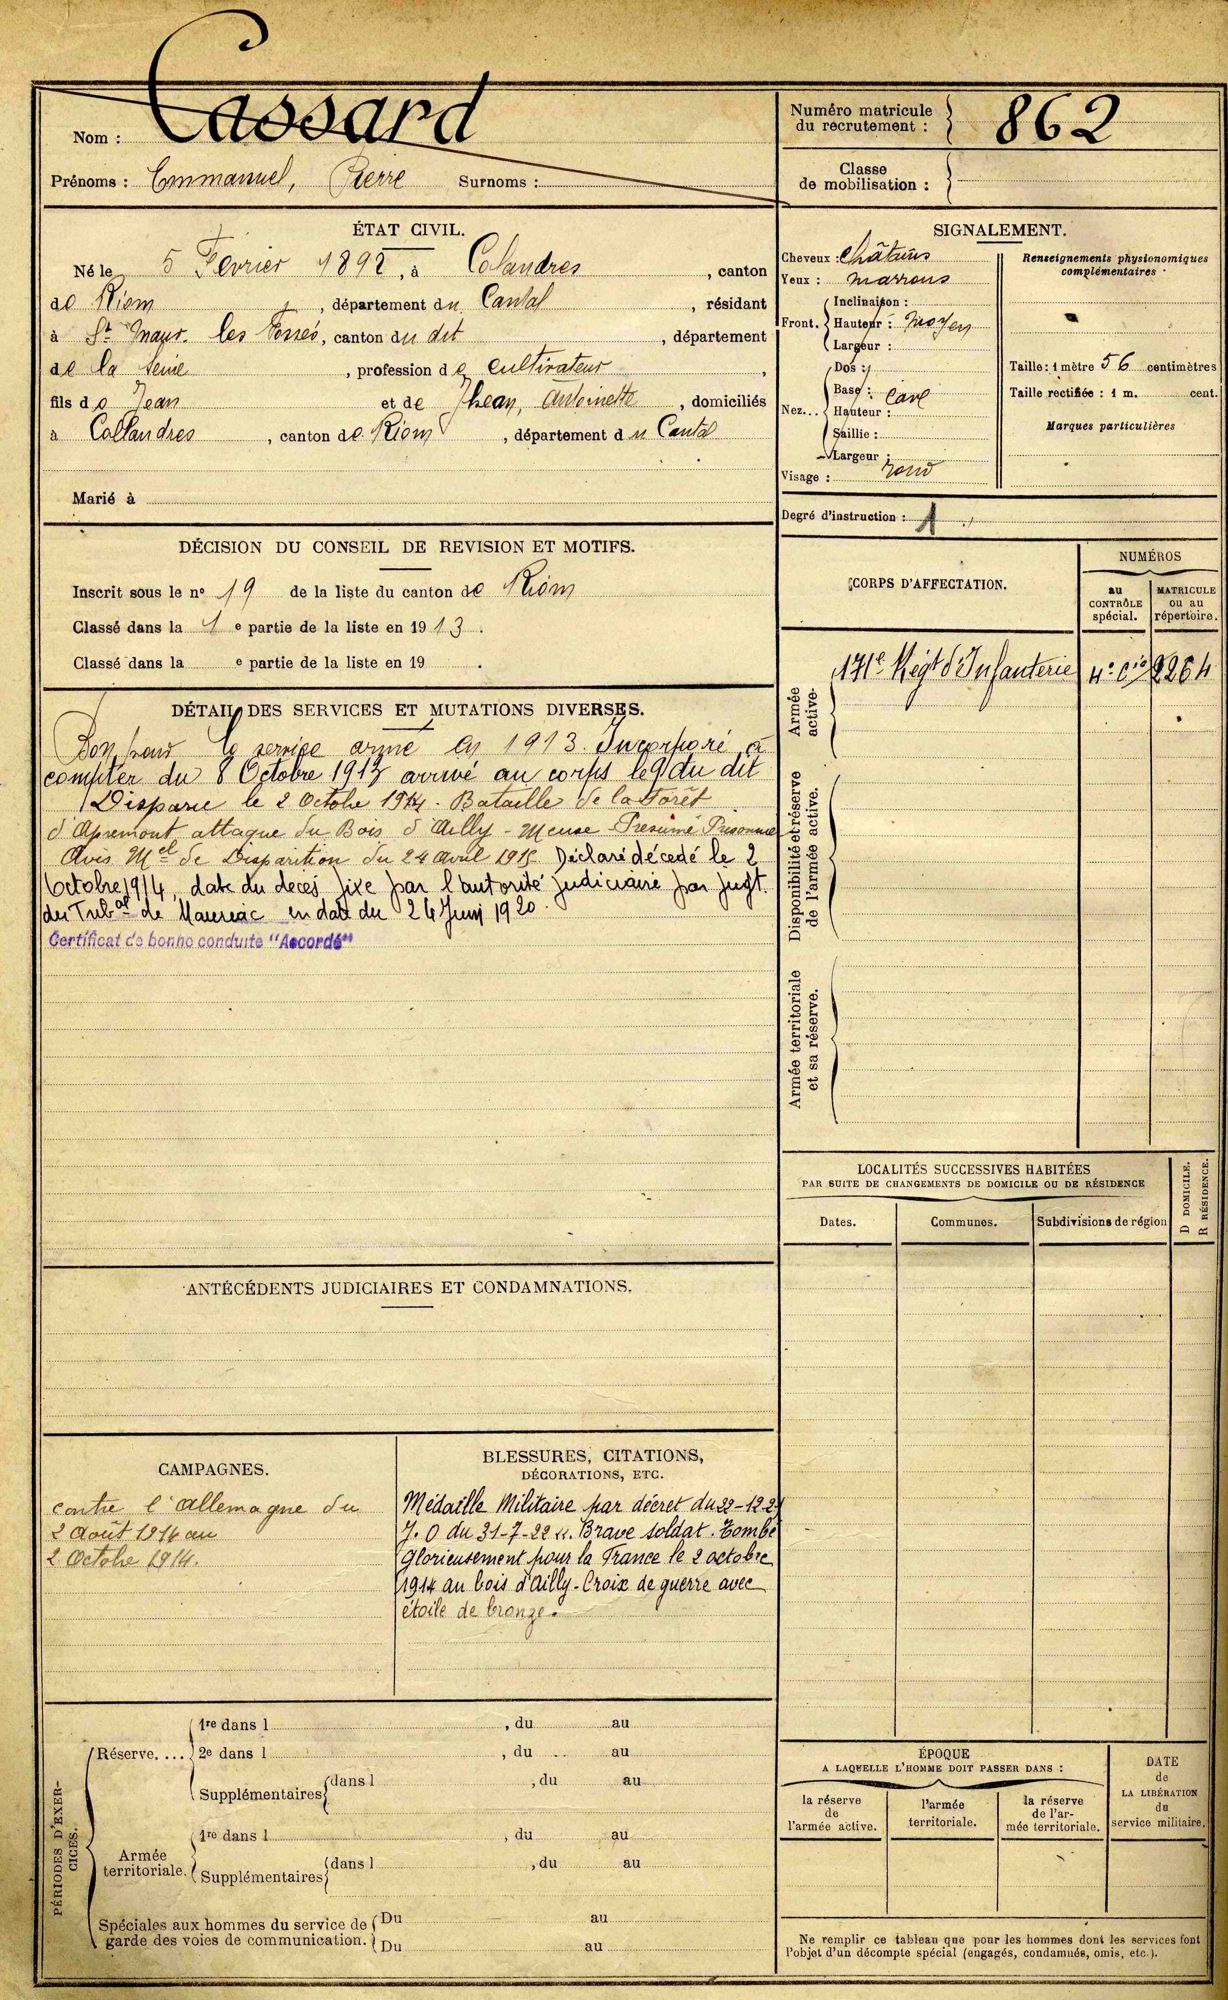 Nom : Cassard
Prénoms : Emmanuel, Pierre Surnoms :
Numéro matricule du recrutement : 862
Classe de mobilisation :
ÉTAT CIVIL.
Né le 5 Février 1892, à Colandres, canton
de Riom, département du Cantal, résidant
à St Maur les Fossés, canton du dit, département
de la Seine, profession de cultivateur,
fils de Jean et de Jhean, Antoinette, domiciliés
à Collandres, canton de Riom, département du Cantal
Marié à
SIGNALEMENT.
Cheveux : Châtains
Yeux : marrons
Front. Inclinaison :
Hauteur : moyen
Largeur :
Nez... Dos :
Base : cave
Hauteur :
Saillie :
Largeur :
Visage : rond
Renseignements physionomiques
complémentaires
Taille : 1 mètre 56 centimètres
Taille rectifiée : 1 m. cent.
Marques particulières
Degré d'instruction : 1
DÉCISION DU CONSEIL DE REVISION ET MOTIFS.
Inscrit sous le n° 19 de la liste du canton de Riom
Classé dans la 1 e partie de la liste en 1913.
Classé dans la e partie de la liste en 19 .
CORPS D'AFFECTATION.
NUMÉROS
au CONTRÔLE spécial.
MATRICULE ou au répertoire.
Armée active.
171e Régt d'Infanterie 4e Cie 2264
Disponibilité et réserve de l'armée active.
Armée territoriale et sa réserve.
DÉTAIL DES SERVICES ET MUTATIONS DIVERSES.
Bon pour le service armé en 1913. Incorporé à
compter du 8 Octobre 1913 arrivé au corps le 9 du dit
Disparu le 2 Octobre 1914. Bataille de la Forêt
d'Apremont attaque du Bois d'Ailly - Meuse - Présumé Prisonnier
Avis Mel de Disparition du 24 avril 1915 Déclaré décédé le 2
Octobre 1914, date du décès fixé par l'autorité judiciaire par jugt.
du Tribal de Mauriac en date du 26 Juin 1920.
Certificat de bonne conduite "Accordé"
LOCALITÉS SUCCESSIVES HABITÉES
PAR SUITE DE CHANGEMENTS DE DOMICILE OU DE RÉSIDENCE
Dates. Communes. Subdivisions de région
D DOMICILE.
R RÉSIDENCE.
ANTÉCÉDENTS JUDICIAIRES ET CONDAMNATIONS.
CAMPAGNES.
contre l'Allemagne du
2 Août 1914 au
2 Octobre 1914.
BLESSURES, CITATIONS,
DÉCORATIONS, ETC.
Médaille Militaire par décret du 22-12-21
J.O du 31-7-22 « Brave soldat. Tombé
glorieusement pour la France le 2 octobre
1914 au bois d'Ailly - Croix de guerre avec
étoile de bronze.
PÉRIODES D'EXERCICES.
Réserve.... 1re dans l , du au
2e dans l , du au
Supplémentaires dans l , du au
Armée territoriale. 1re dans l , du au
Supplémentaires dans l , du au
Spéciales aux hommes du service de Du au
garde des voies de communication. Du au
ÉPOQUE
A LAQUELLE L'HOMME DOIT PASSER DANS :
la réserve de l'armée active.
l'armée territoriale.
la réserve de l'armée territoriale.
DATE de LA LIBÉRATION du service militaire.
Ne remplir ce tableau que pour les hommes dont les services font
l'objet d'un décompte spécial (engagés, condamnés, omis, etc.).